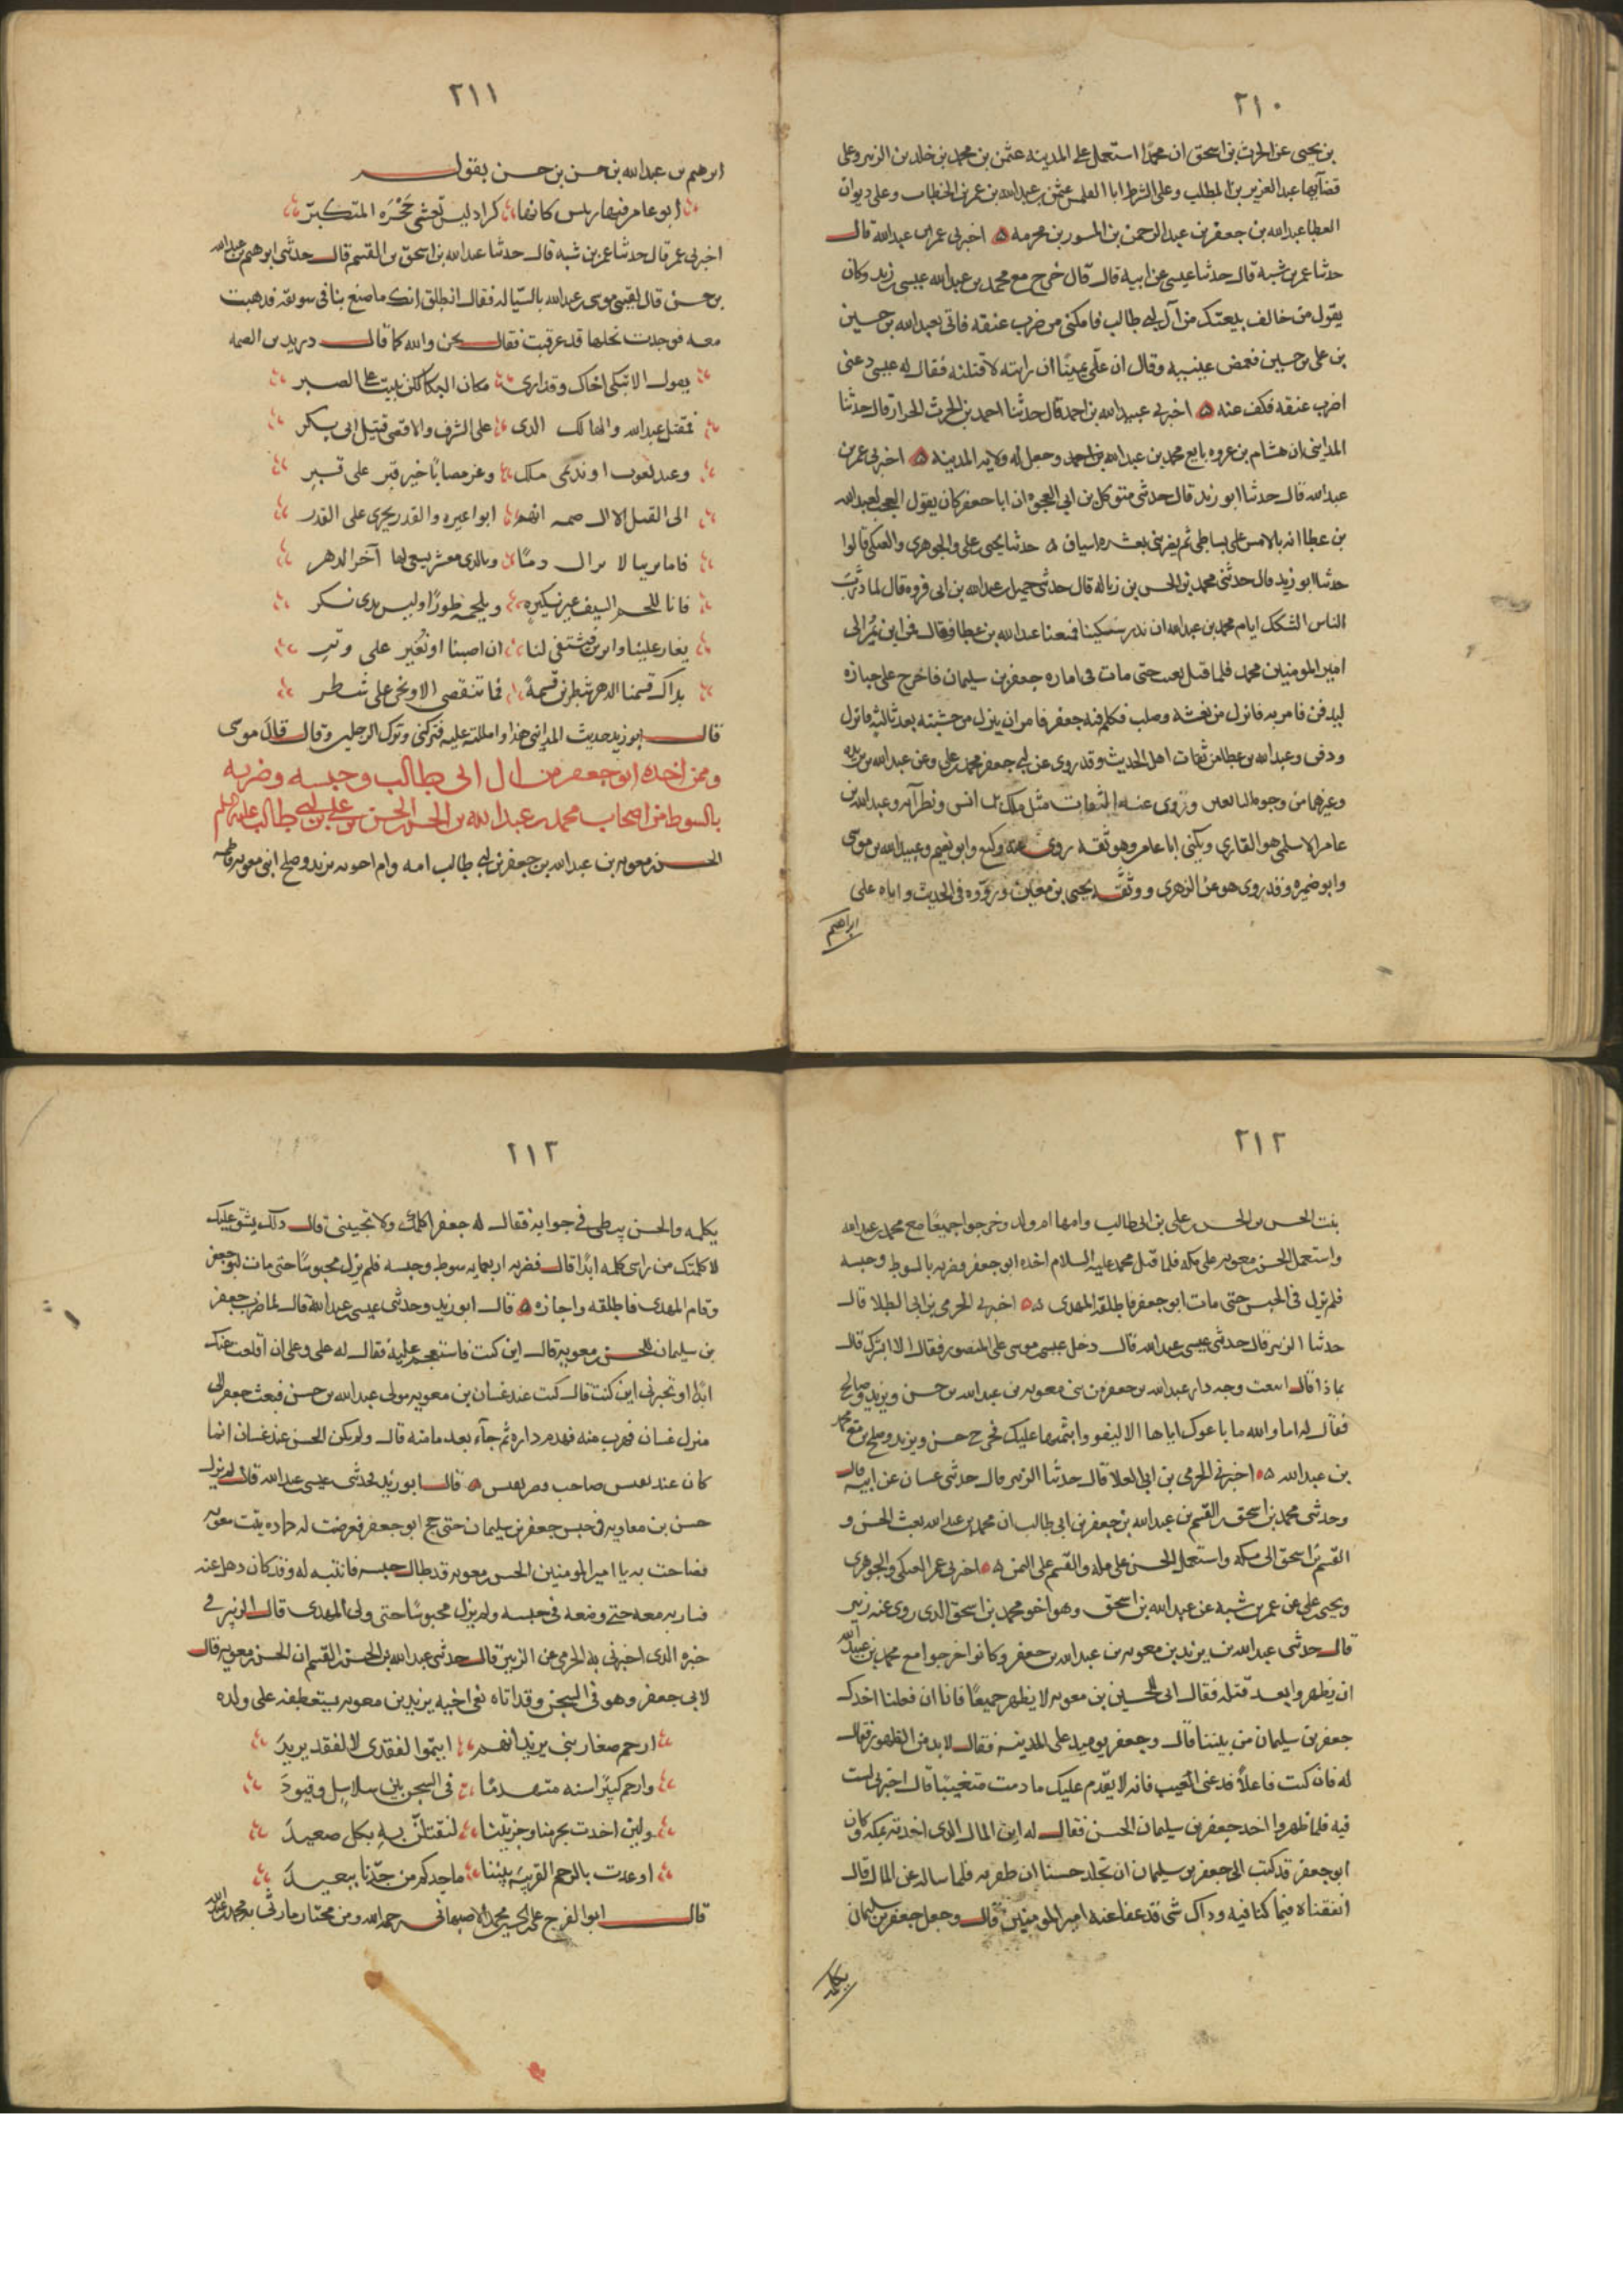 ٢١٠
بن يحيى عن الحرث بن اسحق ان محمدا استعمل على المدينه عثمن بن محمد بن خلد بن الزبير وعلى
قضآيها عبد العزيز بن المطلب وعلى الشرط ابا القلمس عثمن بن عبدالله بن عمر بن الخطاب وعلى ديوان
العطا عبدالله بن جعفر بن عبد الرحمن بن المسور بن مخرمه ه اخبرنى عمر بن عبدالله قال
حدثنا عمر بن شبه قال حدثنا عيسى عن ابيه قال قال خرج مع محمد بن عبدالله عيسى بن زيد وكان
يقول من خالف بيعتك من آل ابى طالب فامكنى من ضرب عنقه فاتى بعبدالله بن حسين
بن على بن حسين فغمض عينيه وقال ان علّى يمينًا ان رايته لاقتلنه فقال له عيسى دعنى
اضرب عنقه فكف عنه ه اخبرنى عبيدالله بن احمد قال حدثنا احمد بن الحرث الخراز قال حدثنا
المداينى ان هشام بن عروه بايع محمد بن عبدالله بن احمد وجعل له ولايه المدينه ه اخبرنى عمر بن
عبدالله قال حدثنا ابو زيد قال حدثنى متوكل بن ابى العجوه ان ابا جعفر كان يقول العجب لعبدالله
بن عطا انه بالامس على بساطى ثم يضربنى بعشره اسياف ه حدثنا يحيى بن على والجوهرى والعتكى قالوا
حدثنا ابو زيد قال حدثنى محمد بن الحسن بن زباله قال حدثنى حميد بن عبدالله بن ابى فروه قال لما
الناس ايام محمد بن عبدالله ان عبدالله بن عطا فقال فمن اين الى
امير المومنين محمد فلما قتل تغيب حتى مات فى اماره جعفر بن سليمان فاخرج على جنازه
ليدفن فامر به فانزل من نعشه وصلب فكلم فيه جعفر فامر ان ينزل من خشبته بعد ثالثه فانزل
ودفن وعبدالله بن عطا من ثقات اهل الحديث وقد روى عن ابى جعفر محمد بن على وعن عبدالله بن بريده
وغيرهما من وجوه التابعين وروى عنه الثقات مثل ملك بن انس ونظرآيه وعبدالله بن
عامر الاسلمى هو القارى ويكنى ابا عامر وهو ثقه روى عنه وكيع وابو نعيم وعبيدالله بن موسى
وابو ضمره وقد روى هو عن الزهرى ووثقه يحيى بن معين و فى الحديث واياه على
ابراهيم
٢١١
ابرهيم بن عبدالله بن حسن بن حسن بقوله
ابو عامر فيها رييس كانها كراديس تغشى حَجْرَه المتكبرّ
اخبرنى عمر قال حدثنا عمر بن شبه قال حدثنا عبدالله بن اسحق بن القسم قال حدثنى ابرهيم بن عبدالله
بن حسن قال لقينى موسى بن عبدالله بالسّياله فقال انطلق اريك ما صنع بنا فى سويقه فذهبت
معه فوجدت نخلها قد عرقبت فقال نحن والله كما قال دريد بن الصمه
يقول الا تبكى اخاك وقد ارى مكان البكا لكن بنيت على الصبر
لمقتل عبدالله والهالك الذى على الشرف الاقصى قتيل ابى بكر
وعبد يغوث او نديمى ملك وعز مصابًا خير قبر على قبر
ابى القتل الا ال صمه انهم ابوا غيره والقدر يجرى على القدر
فاما ترينا لا تزال دمآنا وبالذى معشر يسعى لها آخر الدهر
فانا للحم السيف غير نكيره ويلحمه طورًا وليس بذى نكر
يغار علينا واترين فيشتفى لنا ان اصبنا او نُغير على وتر
بذاك قسمنا الدهر شطرين قسمة فما تنقضى الا ونحن على شطر
قال ابو زيد حديث المداينى هذا وامللته عليه فتركنى وترك الرجلين وقال قال موسى
وممن اخذه ابو جعفر من ال ابى طالب وحبسه وضربه
بالسوط من اصحاب محمد بن عبدالله بن الحسن الحسن بن على بن ابى طالب عليه السلم
الحسن بن معويه بن عبدالله بن جعفر بن ابى طالب امه وام اخويه يزيد وصلح ابنى معويه فاطمه
٢١٢
بنت الحسن بن الحسن بن على بن ابى طالب وامها ام ولد وخرجوا جميعًا مع محمد بن عبدالله
واستعمل الحسن بن معويه على مكه فلما قتل محمد عليه السلام اخذه ابو جعفر فضربه بالسوط وحبسه
فلم يزل فى الحبس حتى مات ابو جعفر فاطلقه المهدى ه ه اخبرنى الحرمى بن ابى العلا قال
حدثنا الزبير قال حدثنى عيسى بن عبدالله قال دخل عيسى بن موسى على المنصور فقال الا ابشرك قال
بماذا قال ابتعت وجه دار عبدالله بن جعفر من بنى معويه بن عبدالله بن حسن ويزيد وصالح
فقال له اما والله ما باعوك اياها الا ليتقووا بثمنها عليك فخرج حسن ويزيد وصلح مع محمد
بن عبدالله ه ه اخبرنى الحرمى بن ابى العلا قال حدثنا الزبير قال حدثنى غسان عن ابيه قال
وحدثنى محمد بن اسحق بن القسم بن عبدالله بن جعفر بن ابى طالب ان محمد بن عبدالله بعث الحسن و
القسم بن اسحق الى مكه واستعمل الحسن على مكه والقسم على اليمن ه ه اخبرنى عمر العتكى والجوهرى
ويحيى بن على عن عمر بن شبه عن عبدالله بن اسحق وهو اخو محمد بن اسحق الذى روى عنه زبير
قال حدثنى عبدالله بن يزيد بن معويه بن عبدالله بن جعفر وكانوا خرجوا مع محمد بن عبدالله
ان يظهروا بعد قتله فقال ابى للحسين بن معويه لا نظهر جميعًا فانا ان فعلنا اخذك
جعفر بن سليمان من بيننا قال وجعفر يوميذ على المدينه فقال لا بد من الظهور فقال
له فان كنت فاعلًا فدعنى اتغيب فانه لا يقدم عليك ما دمت متغيبًا قال لا خير فى عيش لست
فيه فلما ظهروا اخذ جعفر بن سليمان الحسن فقال له اين المال الذى اخذته بمكه وكان
ابو جعفر قد كتب الى جعفر بن سليمان ان تجلد حسنا ان ظفر به فلما ساله عن المال قال
انفقناه فيما كنا فيه وذاك شى قد عفا عنه امير المومنين قال وجعل جعفر بن سليمان
يكلمه
٢١٣
يكلمه والحسن يبطى فى جوابه فقال له جعفر اكلمك ولا تجيبنى قال ذلك يشق عليك
لا كلمتك من راسى كلمه ابدًا قال فضربه اربعمايه سوط وحبسه فلم يزل محبوسًا حتى مات ابو جعفر
وقام المهدى فاطلقه واجازه ه قال ابو زيد وحدثنى عيسى بن عبدالله قال لما ضرب جعفر
بن سليمان للحسن بن معويه قال اين كنت فاستعجم عليه فقال له على وعلى ان اقلعت عنك
ابدًا او تخبرنى اين كنت قال كنت عند غسان بن معويه مولى عبدالله بن حسن فبعث جعفر الى
منزل غسان فهرب منه فهدم داره ثم جآء بعد ما منه قال ولم يكن الحسن عند غسان انما
كان عند نفيس صاحب قصر نفيس ه قال ابو زيد فحدثنى عيسى بن عبدالله قال لم يزل
حسن بن معاويه فى حبس جعفر بن سليمان حتى حج ابو جعفر فعرضت له حماده بنت معويه
فصاحت به يا امير المومنين الحسن بن معويه قد طال حبسه فانتبه له وقد كان ذهل عنه
فسار به معه حتى وضعه فى حبسه ولم يزل محبوسًا حتى ولى المهدى قال الزبير فى
خبره الذى اخبرنى به الحرمى عن الزبير قال حدثنى عبدالله بن الحسن بن القسم ان الحسن بن معويه قال
لابى جعفر وهو فى السجن وقد اتاه نعى اخيه يزيد بن معويه يستعطفه على ولده
ارحم صغار بنى يزيد انهم ايتموا لفقدى لا لفقد يزيد
وارحم كبيرًا سنه متهدمًا فى السجن بين سلاسل وقيود
ولين اخذت بجرمنا وجزيتنا لنقتلنّ به بكل صعيد
او عدت بالرحم القريبه بيننا ما جدكم من جدّنا ببعيد
قال ابو الفرج على بن الحسين بن محمد الاصبهانى رحمه الله ومن مختار ما رثى به محمد بن عبدالله